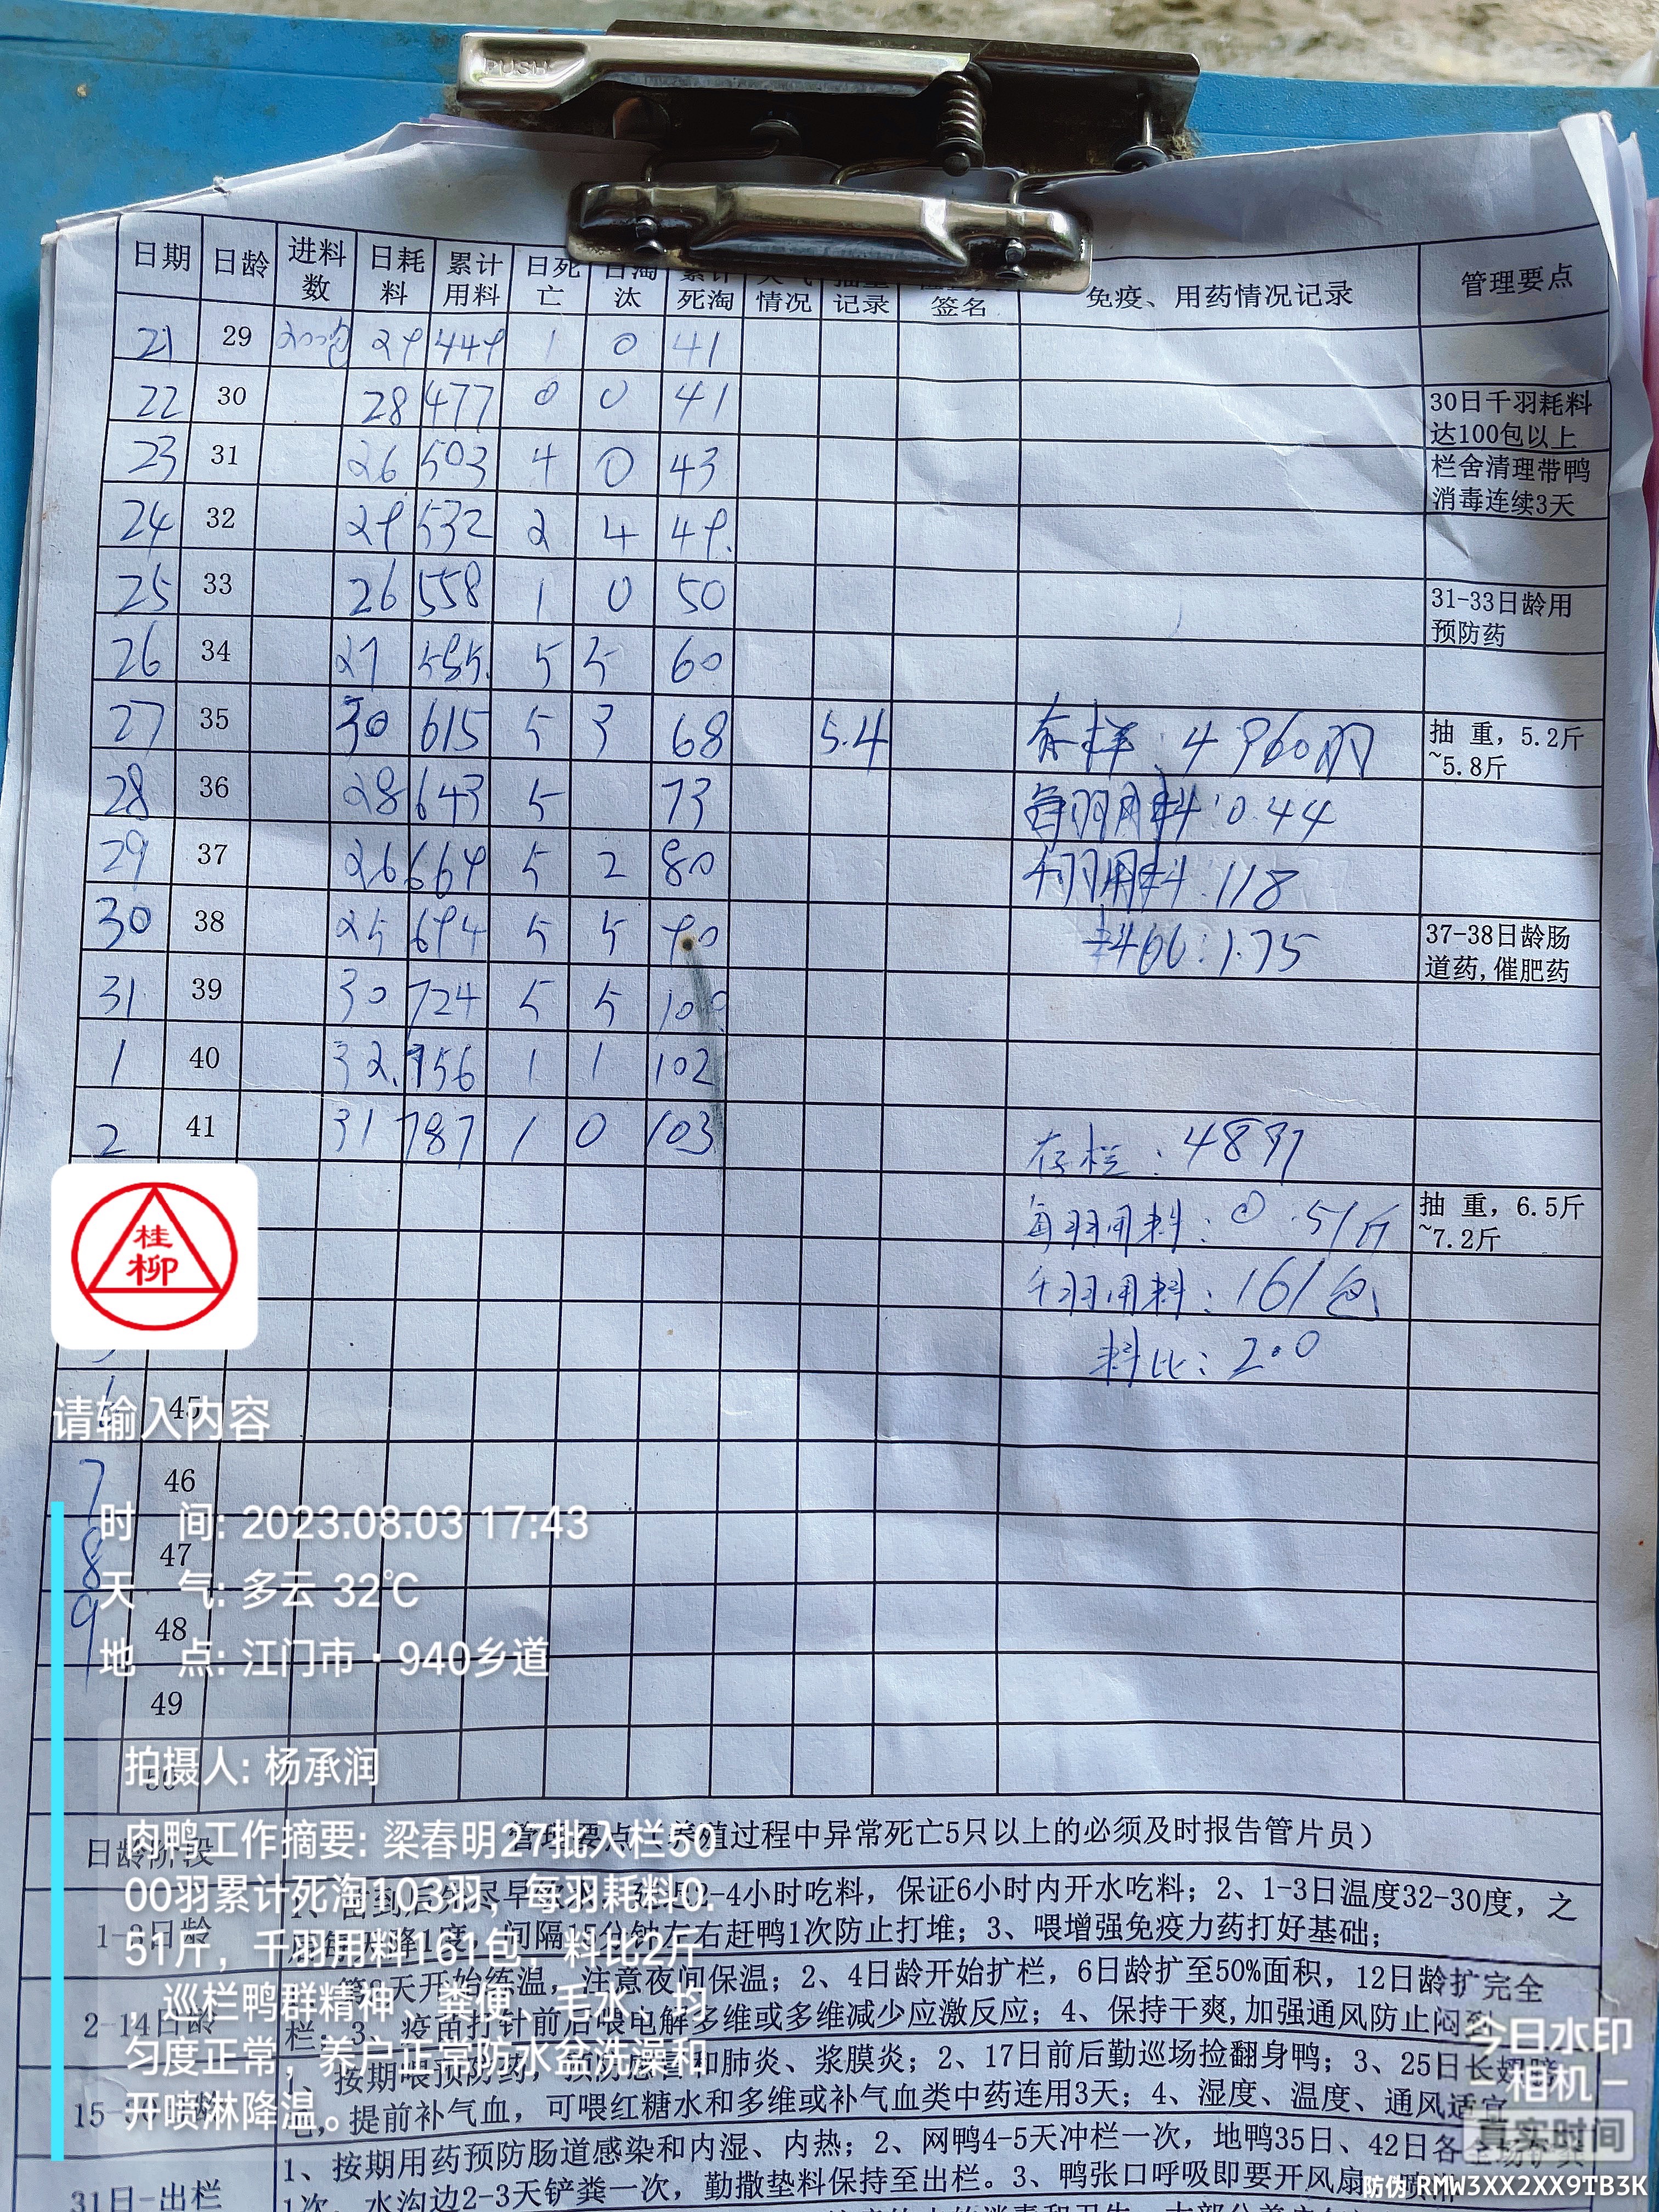 PUSH
日期 日龄 进料数 日耗料 累计用料 日死亡 日淘汰 累计死淘 情况 记录 签名 免疫、用药情况记录 管理要点
21 29 200包 29 449 1 0 41
22 30 28 477 0 0 41 30日千羽耗料达100包以上
23 31 26 503 4 0 43 栏舍清理带鸭消毒连续3天
24 32 29 532 2 4 49.
25 33 26 558 1 0 50 31-33日龄用预防药
26 34 27 585. 5 5 60
27 35 30 615 5 3 68 5.4 4960羽 抽 重，5.2斤~5.8斤
28 36 28 643 5 73 每羽用料:0.44
29 37 26 669 5 2 80 千羽用料:118
30 38 25 694 5 5 90 料比:1.75 37-38日龄肠道药,催肥药
31 39 30 724 5 5 100
1 40 32. 756 1 1 102
2 41 31 787 1 0 103 存栏:4897
每羽用料:0.51斤 抽 重，6.5斤~7.2斤
千羽用料:161包
料比:2.0
桂柳
45
7 46
8 47
9 48
49
50
请输入内容
时 间: 2023.08.03 17:43
天 气: 多云 32℃
地 点: 江门市·940乡道
拍摄人: 杨承润
肉鸭工作摘要: 梁春明27批入栏50
00羽累计死淘103羽，每羽耗料0.
51斤，千羽用料161包，料比2斤
，巡栏鸭群精神、粪便、毛水、均
匀度正常，养户正常防水盆洗澡和
开喷淋降温。
日龄阶段 养殖过程中异常死亡5只以上的必须及时报告管片员）
1-3日龄 2-4小时吃料，保证6小时内开水吃料；2、1-3日温度32-30度，之
间隔15分钟左右赶鸭1次防止打堆；3、喂增强免疫力药打好基础；
2-14日龄 天开始练温，注意夜间保温；2、4日龄开始扩栏，6日龄扩至50%面积，12日龄扩完全
栏；3、疫苗打针前后喂电解多维或多维减少应激反应；4、保持干爽,加强通风防止闷
1、按期喂预防药，预防感冒和肺炎、浆膜炎；2、17日前后勤巡场捡翻身鸭；3、25日长翅膀
提前补气血，可喂红糖水和多维或补气血类中药连用3天；4、湿度、温度、通风适宜
31日-出栏 1、按期用药预防肠道感染和内湿、内热；2、网鸭4-5天冲栏一次，地鸭35日、42日各
1次，水沟边2-3天铲粪一次，勤撒垫料保持至出栏。3、鸭张口呼吸即要开风扇
今日水印
相机
真实时间
防伪 RMW3XX2XX9TB3K